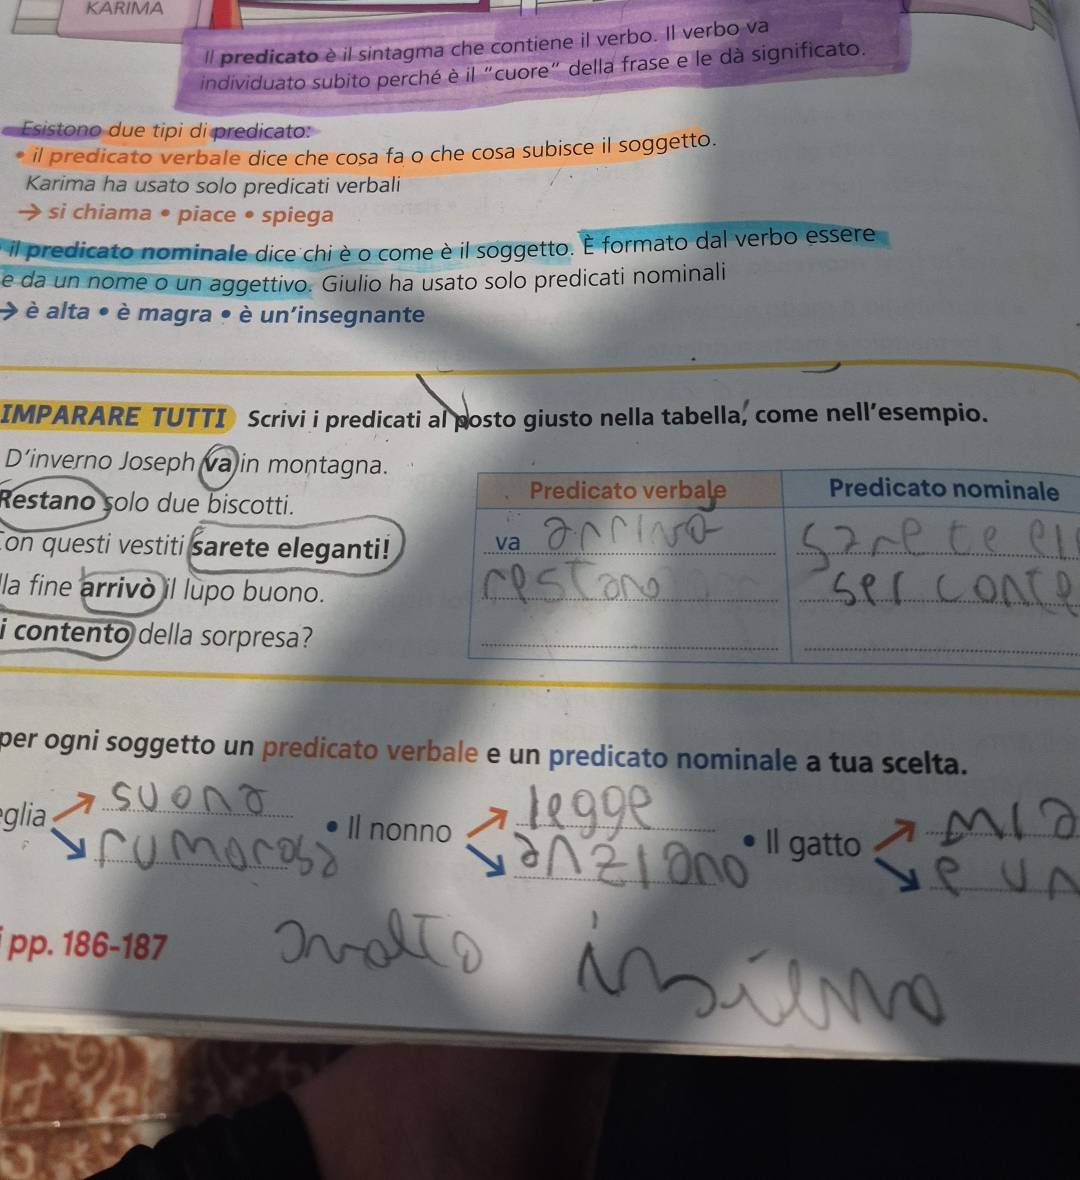 KARIMA
Il predicato è il sintagma che contiene il verbo. Il verbo va
individuato subito perché è il "cuore" della frase e le dà significato.
Esistono due tipi di predicato:
• il predicato verbale dice che cosa fa o che cosa subisce il soggetto.
Karima ha usato solo predicati verbali
→ si chiama • piace • spiega
il predicato nominale dice chi è o come è il soggetto. È formato dal verbo essere
e da un nome o un aggettivo. Giulio ha usato solo predicati nominali
→ è alta • è magra • è un'insegnante
IMPARARE TUTTI Scrivi i predicati al posto giusto nella tabella, come nell'esempio.
D'inverno Joseph va in montagna.
Restano solo due biscotti.
on questi vestiti sarete eleganti!
lla fine arrivò il lupo buono.
i contento della sorpresa?
Predicato verbale Predicato nominale
va arriva sarete el
restano sei conte
per ogni soggetto un predicato verbale e un predicato nominale a tua scelta.
glia suona
rumorosa
• Il nonno legge
anziano
• Il gatto mia
e un
pp. 186-187
molto